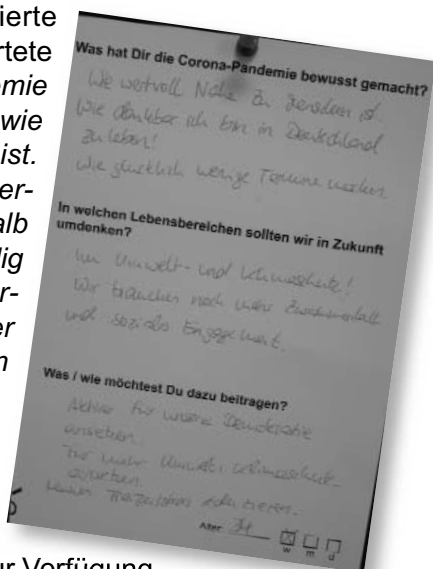 ierte
rtete
emie
wie
ist.
er-
alb
dig
er-
er
n
ur Verfügung
Was hat Dir die Corona-Pandemie bewusst gemacht?
Wie wertvoll Nähe zu ist.
Wie dankbar ich bin in Deutschland
zu leben!
Wie glücklich wenige Termine machen
In welchen Lebensbereichen sollten wir in Zukunft
umdenken?
Im Umwelt- und Klimaschutz!
Wir brauchen noch mehr Zusammenhalt
und soziales Engagement.
Was / wie möchtest Du dazu beitragen?
Aktiver für unsere Demokratie
einsetzen.
Für mehr Umwelt, Klimaschutz
einsetzen.
Alter 34
w m d